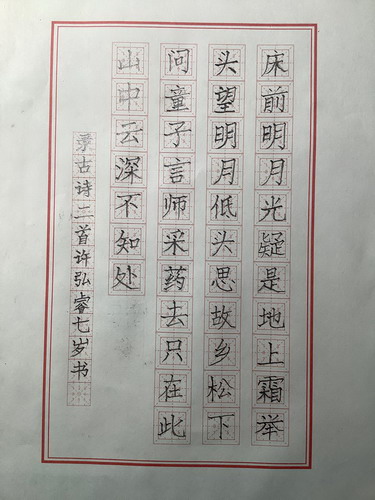 床前明月光疑是地上霜举
头望明月低头思故乡松下
问童子言师采药去只在此
山中云深不知处
录古诗二首许弘睿七岁书